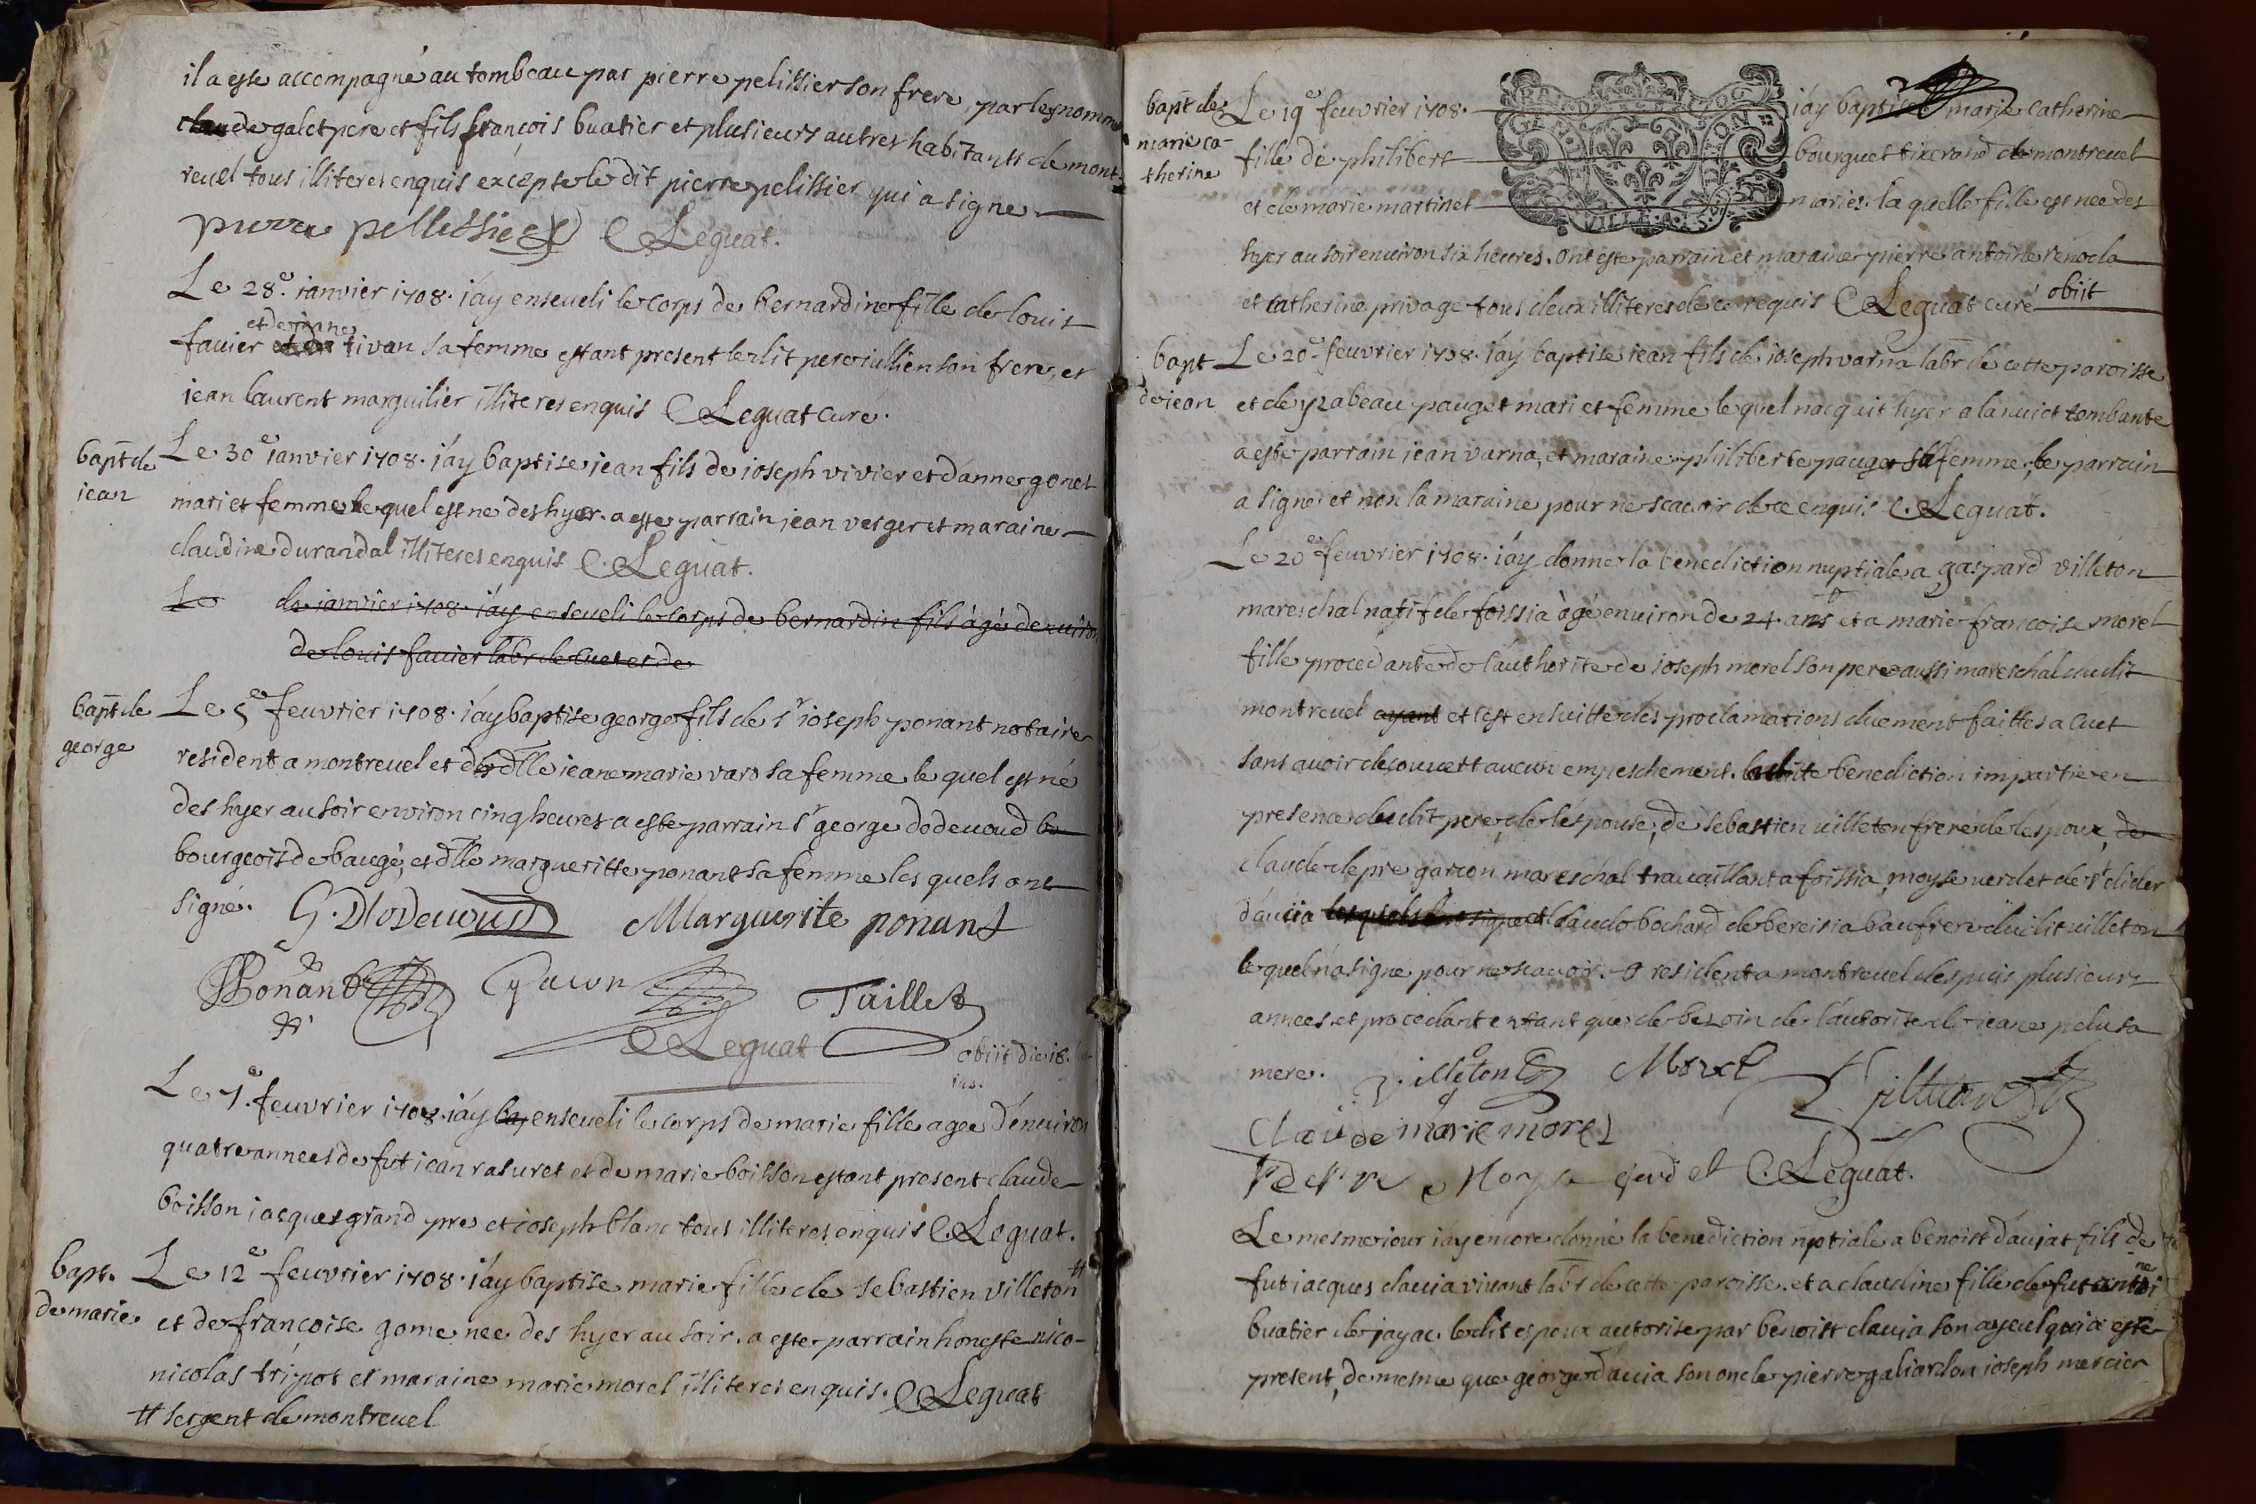 il a este accompagné au tombeau par pierre pelissier son frere, par les nommes
claude galet pere et fils françois buatier et plusieurs autres habitants de mont
revel tous illiteres enquis excepte le dit pierre pelissier qui a signe
pierre pellissier C Leguat.
Le 28e. janvier 1708. j'ay enseveli le corps de bernardine fille de louis
et de jeane
favier tivan sa femme estant present le dit pere jullien son frere, et
jean laurent marguilier illiteres enquis C Leguat curé.
bapt de
jean
Le 30e janvier 1708. j'ay baptise jean fils de joseph vivier et d'anne gonet
mari et femme le quel est né des hyer. a este parrain jean verger et maraine
claudine durandal illiteres enquis C. Leguat.
Le de janvier 1708. j'ay enseveli le corps de bernardin fils âgé denviron
de louis favier labr de Cuet et de
bapt de
george
Le 5e feuvrier 1708. j'ay baptise george fils de sr joseph ponant notaire
resident a montrevel et de dlle jeane marie varo sa femme le quel est né
des hyer au soir environ cinq heures a este parrain sr george dodevoud bo
bourgeois de baugé, et dlle margueritte ponant sa femme les quels ont
signé. G. Dodevoud Marguerite ponant
Ponant Gacon Taillet
C Leguat
obiit die 18.
Le 7e. feuvrier 1708. j'ay bap enseveli le corps de marie fille agee d'environ
quatre annees de fut jean rasuret et de marie boisson estant present claude
boisson jacques grand pre et joseph blanc tous illiteres enquis C. Leguat.
bapt.
de marie.
Le 12e feuvrier 1708. j'ay baptise marie fille de sebastien villeton #
et de françoise gome nee des hyer au soir. a este parrain honeste nico-
nicolas tripot et maraine marie morel illiteres enquis. C Leguat
# sergent de montrevel
bapt de
marie ca-
therine
Le 19e feuvrier 1708. j'ay baptisé marie catherine
fille de philibert bourguet tixerand de montrevel
et de marie martinet maries. la quelle fille est nee des
GEN DION
VILLE A 1 S
hyer au soir environ six heures. ont este parrain et maraine pierre antoine renocla
et catherine privage tous deux illiteres de ce requis C Leguat curé obiit
bapt
de jean
Le 20e feuvrier 1708. j'ay baptise jean fils de joseph varna labr de cette paroisse
et de yzabeau pauget mari et femme le quel nacquit hyer a la nuict tombante
a este parrain jean varna, et maraine philiberte pauget sa femme, le parrain
a signe et non la maraine pour ne scavoir de ce enquis C. Leguat.
Le 20e feuvrier 1708. j'ay donne la benediction nuptiale a gaspard villeton
mareschal natif de foissia âgé environ de 24. ans et a marie françoise morel
fille procedante de l'authorite de joseph morel son pere aussi mareschal dudit
montrevel ayant et c'est ensuitte des proclamations duement faittes a Cuet
sans avoir decouvert aucun empeschement. laditte benediction impartie en
presence dudit pere, de l'espouse, de sebastien villeton frere de l'espoux, de
claude depre garçon mareschal travaillant a foissia, moyse verdet de st didier
d'aucia lesquels ont signe et claude bochard de bereisia baufrere dudit villeton
le quel n'a signe pour ne scavoir. resident a montrevel despuis plusieurs
annees. et procedant entant que de besoin de l'autorite de jeane pelu sa
mere. villeton Morel
Claude marie morel
Depre Moyse verdet C. Leguat.
Le mesme jour j'ay encore donné la benediction nuptiale a benoist d'aujat fils de
fut jacques daucia vivant labr de cette paroisse. et a claudine fille de fut antoi
ne
buatier de jayac. ledit espoux autorise par benoist daucia son ayeul qui a este
present, de mesme que george d'aucia son oncle pierre galiardon joseph mercier